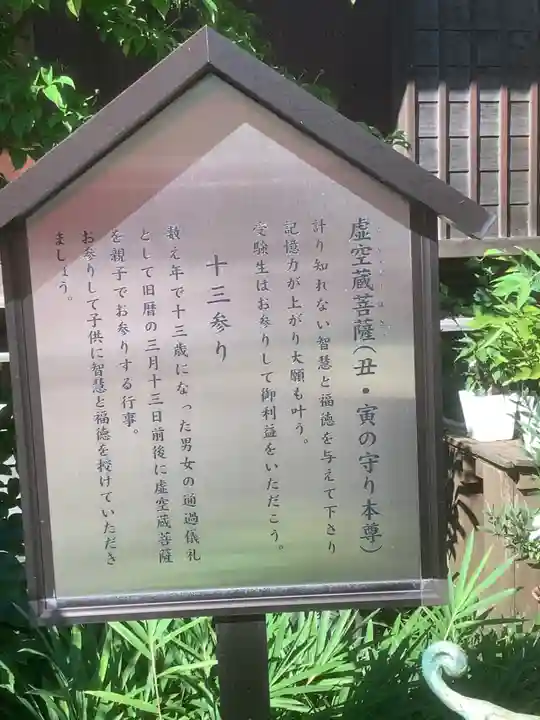 虚空蔵菩薩(丑・寅の守り本尊)
計り知れない智慧と福徳を与えて下さり
記憶力が上がり大願も叶う。
受験生はお参りして御利益をいただこう。
十三参り
数え年で十三歳になった男女の通過儀礼
として旧暦の三月十三日前後に虚空蔵菩薩
を親子でお参りする行事。
お参りして子供に智慧と福徳を授けていただき
ましょう。